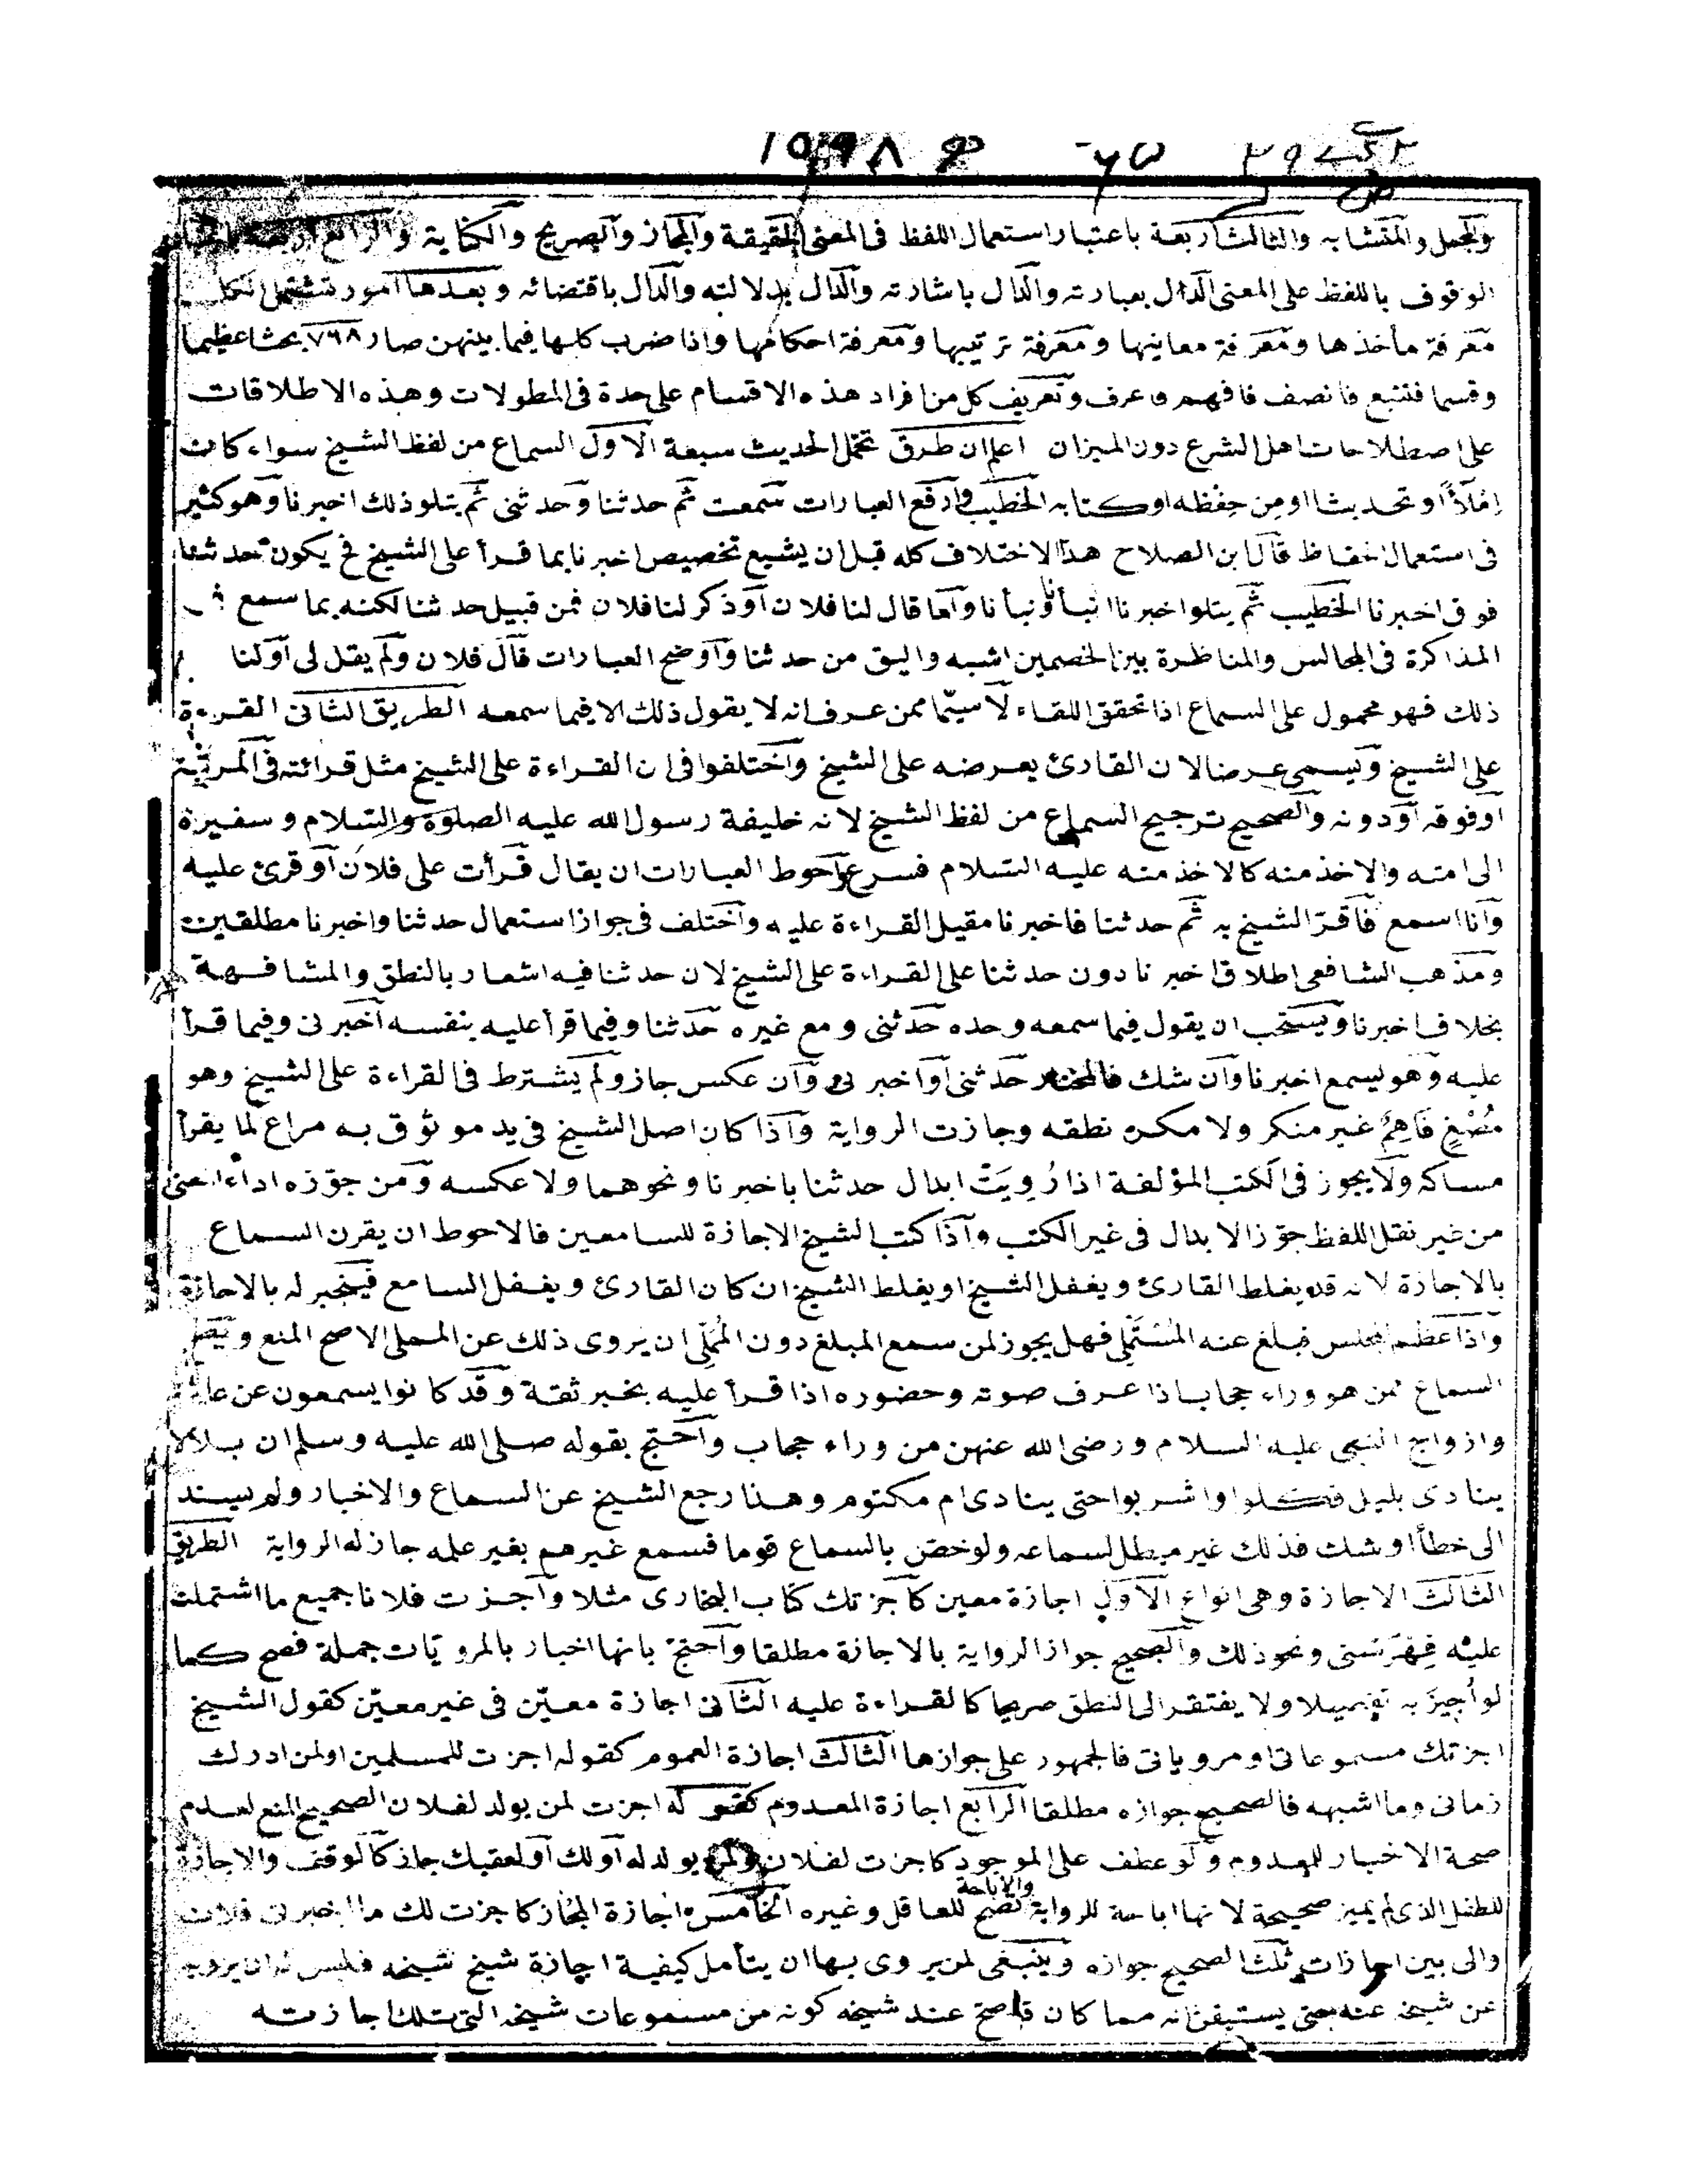 والمجمل والمتشابه والثالث اربعة باعتبار استعمال اللفظ فى المعنى الحقيقة والمجاز والصريح والكناية والرابع اربعة
الوقوف باللفظ على المعنى الدال بعبارته والدال باشارته والدال بدلالته والدال باقتضائه وبعدها امور تشتمل لكل
معرفة مأخذها ومعرفة معانيها ومعرفة ترتيبها ومعرفة احكامها واذا ضرب كلها فيما بينهن صار ٧٦٨ بحثا عظيما
وقسما فتتبع فانصف فافهم فاعرف وتعريف كل من افراد هذه الاقسام على حدة فى المطولات وهذه الاطلاقات
على اصطلاحات اهل الشرع دون الميزان اعلم ان طرق تحمل الحديث سبعة الاول السماع من لفظ الشيخ سواء كانت
املاًً او تحديثا او من حفظه او كتابه الخطيب وارفع العبارات سمعت ثم حدثنا وحدثنى ثم يتلو ذلك اخبرنا وهو كثير
فى استعمال الحفاظ قال ابن الصلاح هذا الاختلاف كله قبل ان يشيع تخصيص اخبرنا بما قرأ على الشيخ فح يكون حدثنا
فوق اخبرنا الخطيب ثم يتلوا خبرنا انبأنا ونبأنا واما قال لنا فلان او ذكر لنا فلان فمن قبيل حدثنا لكنه بما سمع
المذاكرة فى المجالس والمناظرة بين الخصمين اشبه واليق من حدثنا واوضح العبارات قال فلان ولم يقل لى او لنا
ذلك فهو محمول على السماع اذا تحقق اللقاء لا سيّما ممن عرف انه لا يقول ذلك الا فيما سمعه الطريق الثانى القرءة
على الشيخ ويسمى عرضا لان القارئ يعرضه على الشيخ واختلفوا فى ان القراءة على الشيخ مثل قرائته فى المرتبة
او فوقه او دونه والصحيح ترجيح السماع من لفظ الشيخ لانه خليفة رسول الله عليه الصلوة والسلام وسفيرة
الى امته والاخذ منه كالاخذ منه عليه السلام فسرع واحوط العبارات ان يقال قرأت على فلان او قرئ عليه
وانا اسمع فاقرّ الشيخ به ثم حدثنا فاخبرنا مقيل القراءة عليه واختلف فى جواز استعمال حدثنا واخبرنا مطلقين
ومذهب الشافعى اطلاق اخبرنا دون حدثنا على القراءة على الشيخ لان حدثنا فيه اشعار بالنطق والمشافهة
بخلاف اخبرنا ويستحب ان يقول فيما سمعه وحده حدثنى ومع غيره حدثنا وفيما قرأ عليه بنفسه اخبرنى وفيما قرأ
عليه وهو يسمع اخبرنا وان شك فالمختار حدثنى او اخبرنى وان عكس جاز ولم يشترط فى القراءة على الشيخ وهو
مُصْغٍ فَاهِمٌ غير منكر ولا مكره نطقه وجازت الرواية واذا كان اصل الشيخ فى يد موثوق به مراع لما يقرأ
مساكه ولا يجوز فى الكتب المؤلفة اذا رُوِيَتْ ابدال حدثنا باخبرنا ونحوهما ولا عكسه ومن جوّزه اداء المعنى
من غير نقل اللفظ جوّز الابدال فى غير الكتب واذا كتب الشيخ الاجازة للسامعين فالاحوط ان يقرن السماع
بالاجازة لانه قد يغلط القارئ ويغفل الشيخ او يغلط الشيخ ان كان القارئ ويغفل السامع فينجبر له بالاجازة
واذا عظم مجلس فبلغ عنه المُسْتَمْلِى فهل يجوز لمن سمع المبلغ دون المُمْلِى ان يروى ذلك عن المملى الاصح المنع
السماع ممن هو وراء حجاب اذا عرف صوته وحضوره اذا قرأ عليه بخبر ثقة وقد كانوا يسمعون عن
وازواج النبى عليه السلام ورضى الله عنهن من وراء حجاب واحتج بقوله صلى الله عليه وسلم ان بلالا
ينادى بليل فكلوا واشربوا حتى ينادى ام مكتوم وهذا رجع الشيخ عن السماع والاخبار ولم يسند
الى خطأ او شك فذلك غير مبطل لسماعه ولو خصّ بالسماع قوما فسمع غيرهم بغير علمه جاز له الرواية الطريق
الثالث الاجازة وهى انواع الاول اجازة معين كاجزتك كتاب البخارى مثلا واجزت فلانا جميع ما اشتملت
عليه فِهْرَسْتى ونحو ذلك والصحيح جواز الرواية بالاجازة مطلقا واحتج بانها اخبار بالمرويّات جملة فصح كما
لو اُجِيزَ به تفصيلا ولا يفتقر الى النطق صريحا كالقراءة عليه الثانى اجازة معيّن فى غير معيّن كقول الشيخ
اجزتك مسموعاتى او مروياتى فالجمهور على جوازها الثالث اجازة العموم كقوله اجزت للمسلمين او لمن ادرك
زمانى وما اشبهه فالصحيح جوازه مطلقا الرابع اجازة المعدوم كقوله اجزت لمن يولد لفلان الصحيح المنع لعدم
صحة الاخبار للمعدوم ولو عطف على الموجود كاجزت لفلان ولمن يولد له او لك او لعقبك جاز كالوقف والاجازة
والاباحة
للطفل الذى لم يميز صحيحة لانها اباحة للرواية تصح للعاقل وغيره الخامس اجازة المجاز كاجزت لك ما اخبرنى فلان
والى بين اجازات ثلث الصحيح جوازه وينبغى لمن يروى بها ان يتأمل كيفية اجازة شيخ شيخه فليس له ان يرويه
عن شيخه عنه حتى يستيقن انه مما كان قد صح عند شيخه كونه من مسموعات شيخه التى تلك اجازته